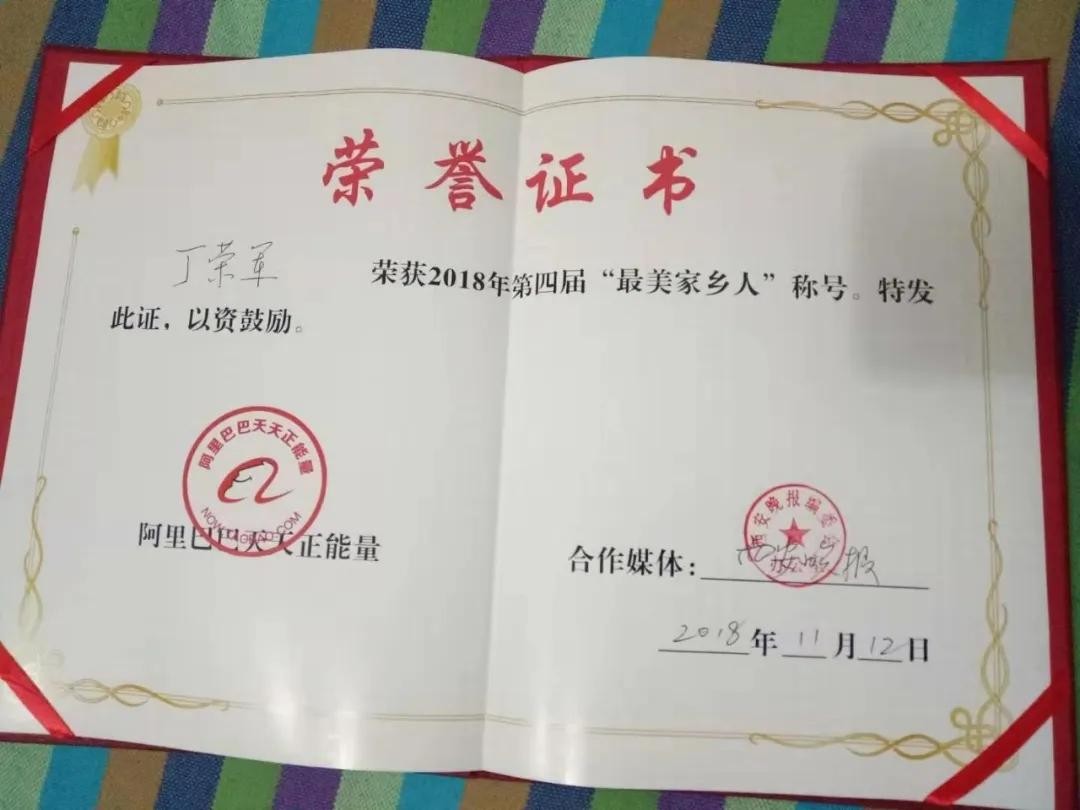 荣誉证书
丁荣军 荣获2018年第四届“最美家乡人”称号。特发
此证，以资鼓励。
阿里巴巴天天正能量
阿里巴巴天天正能量
合作媒体：西安晚报
西安晚报编委会
2018年11月12日